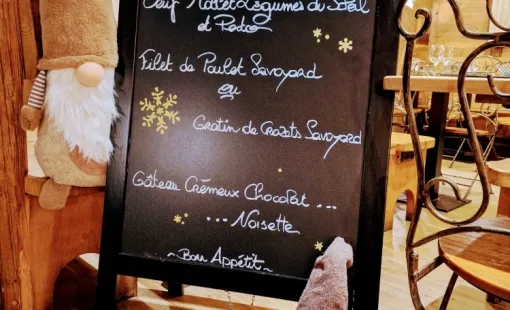 Œuf Mollet Légumes du Soleil
et Pesto
Filet de Poulet Savoyard
ou
Gratin de Crozets Savoyard
Gâteau Crémeux Chocolat ...
... Noisette
~ Bon Appétit ~